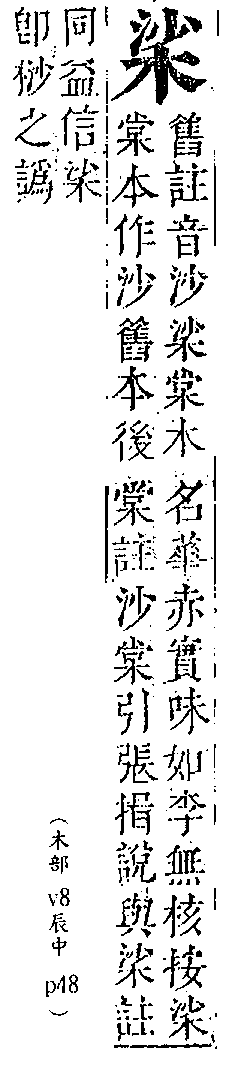 桬
舊註音沙桬棠木名華赤實味如李無核按桬
棠本作沙舊本後棠註沙棠引張揖說與桬註
同益信桬
卽桫之譌
(木部 v8辰中 p48)